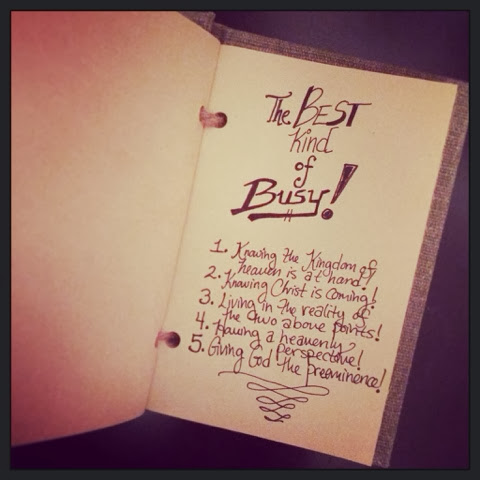 The BEST
Kind
of
Busy!
1. Knowing the Kingdom of
heaven is at hand!
2. Knowing Christ is coming!
3. Living in the reality of
the two above points!
4. Having a heavenly
perspective!
5. Giving God the preeminence!